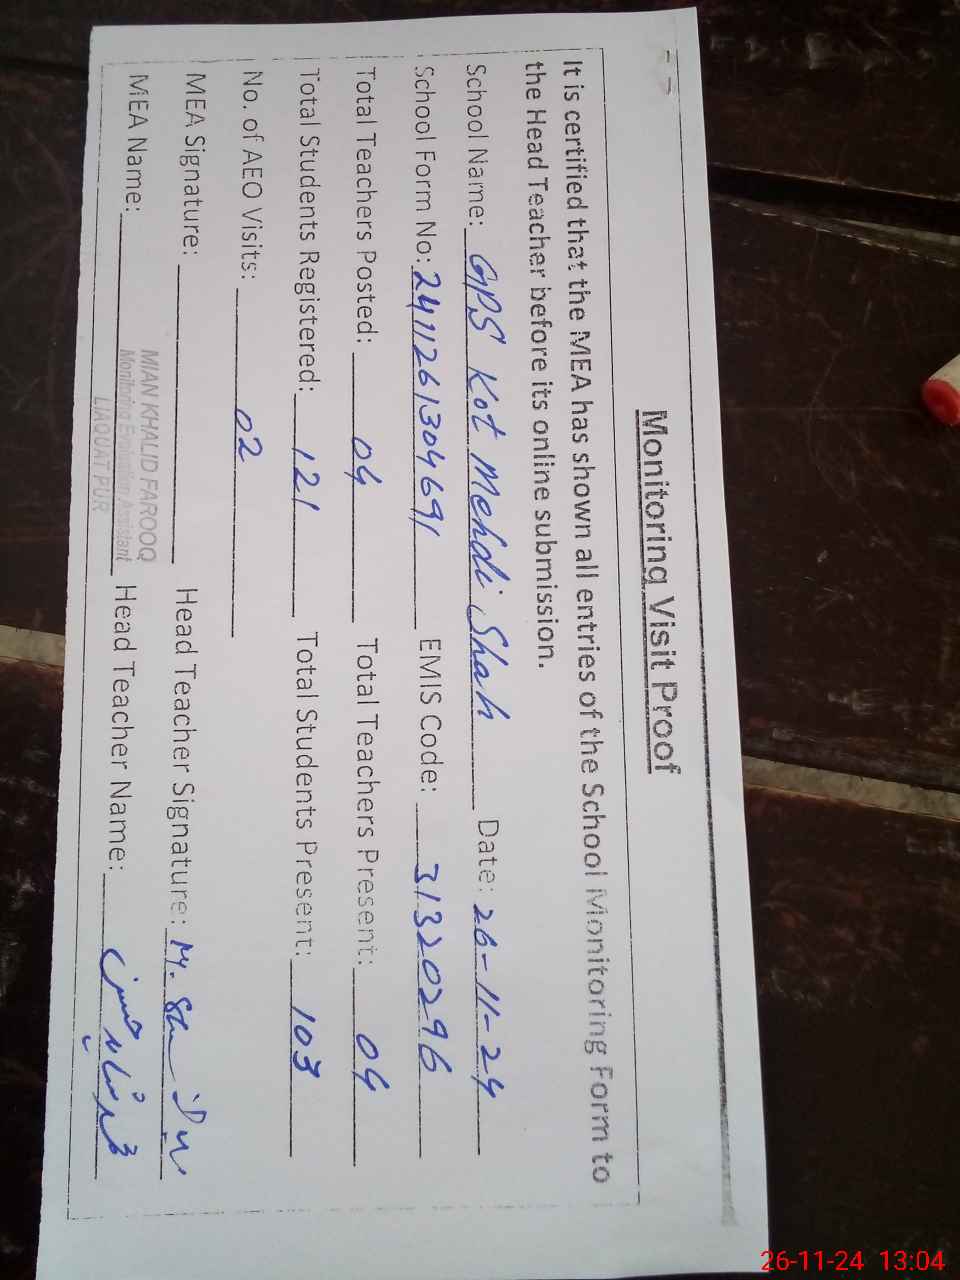 Monitoring Visit Proof
It is certified that the MEA has shown all entries of the School Monitoring Form to
the Head Teacher before its online submission.
School Name: GPS Kot Mehdi Shah Date: 26-11-24
School Form No: 2411261304691 EMIS Code: 31320296
Total Teachers Posted: 04 Total Teachers Present: 04
Total Students Registered: 121 Total Students Present: 103
No. of AEO Visits: 02
MEA Signature: Head Teacher Signature: M.
MIAN KHALID FAROOQ
Monitoring Evaluation Assistant
LIAQUAT PUR
MEA Name: Head Teacher Name:
26-11-24 13:04